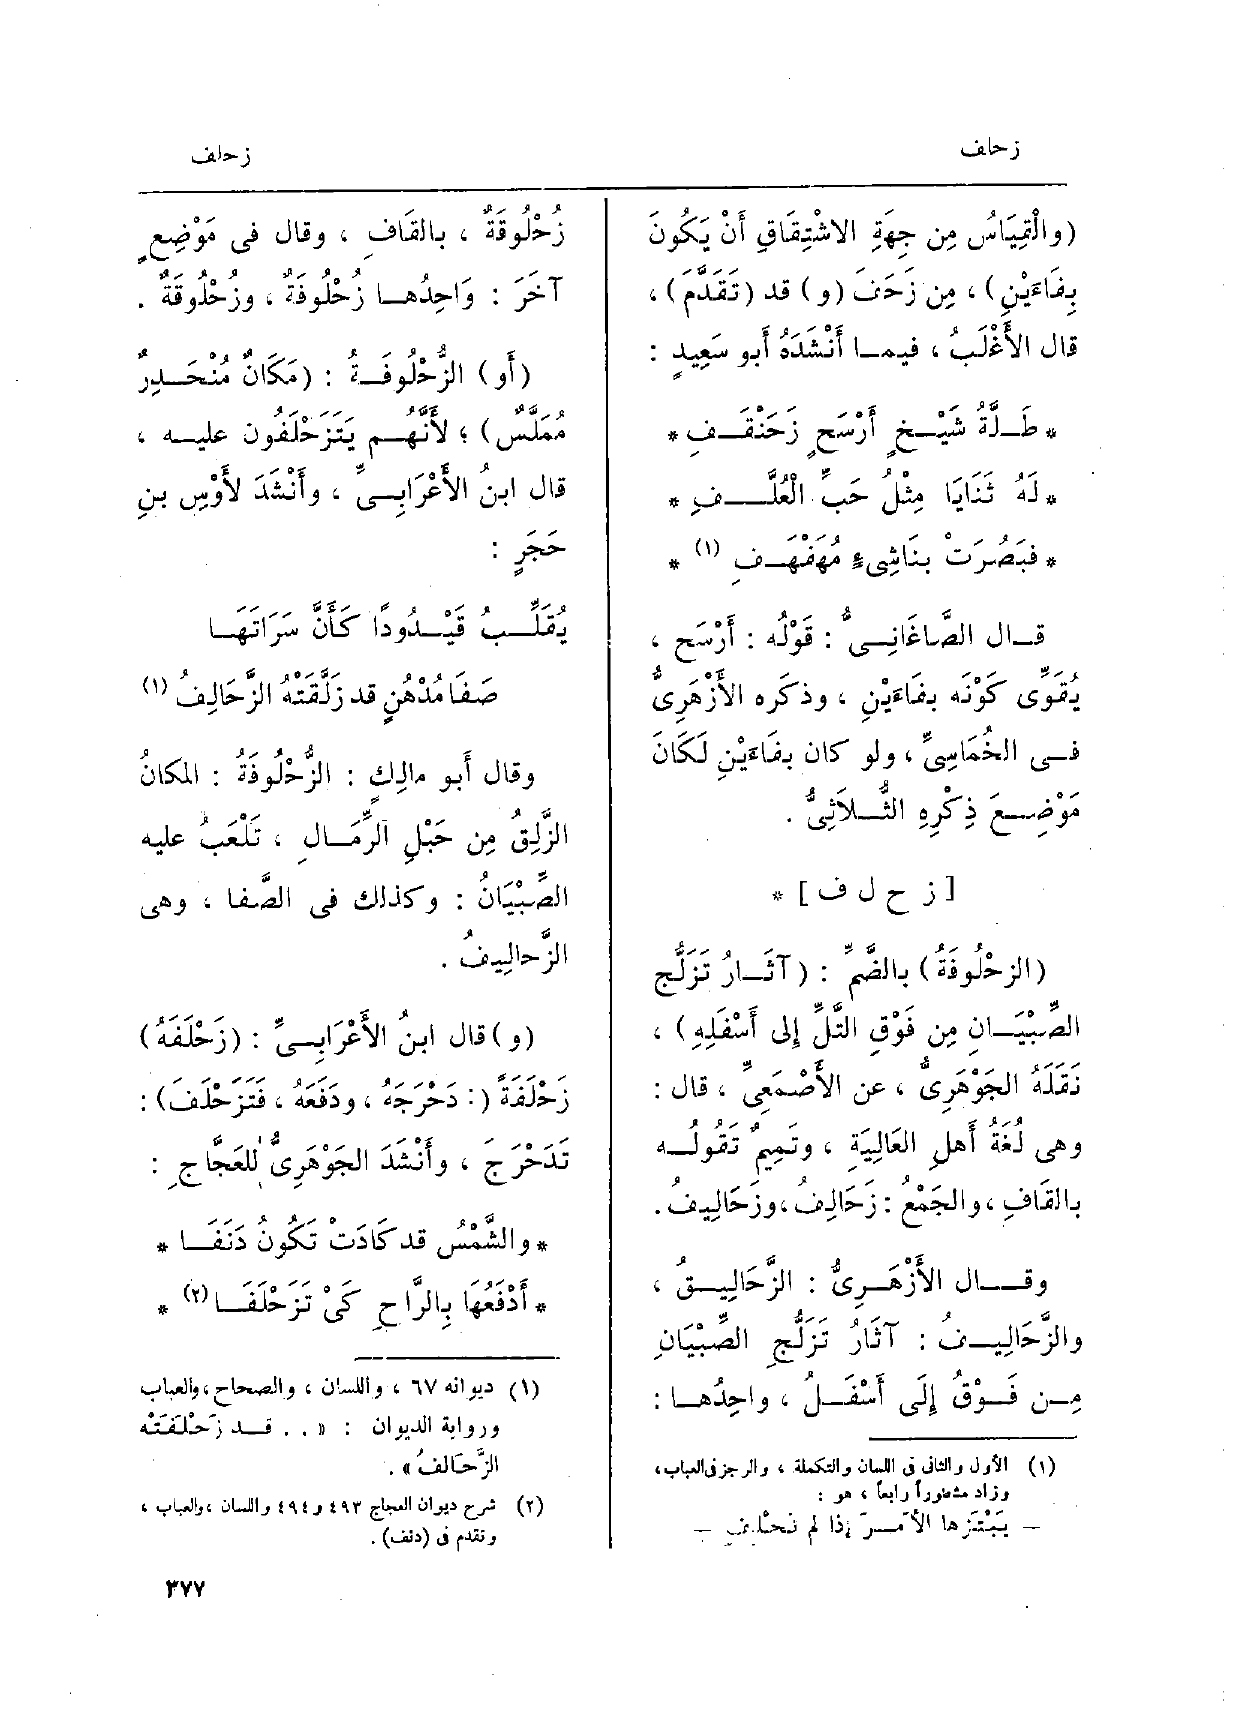 زحلف
زحلف
(والْقِيَاسُ مِن جِهَةِ الاشْتِقَاقِ أَنْ يَكُونَ
بِفَاءَيْنِ) ، مِن زَحَفَ (و) قد (تَقَدَّمَ) ،
قال الأَغْلَبُ ، فيمـا أَنْشَدَهُ أَبو سَعِيدٍ :
* طَـلَّةُ شَيْـخٍ أَرْسَحٍ زَحَنْقَـفِ *
* لَهُ ثَنَايَا مِثْلُ حَبِّ الْعُلَّـــفِ *
* فَبَصُرَتْ بنَاشِىءٍ مُهَفْهَـفِ (١) *
قـال الصَّاغَانِـىُّ : قَوْلُه : أَرْسَح ،
يُقَوِّى كَوْنَه بفَاءَيْنِ ، وذَكَره الأَزْهَرِىُّ
فـى الخُمَاسِىِّ ، ولو كان بفَاءَيْنِ لَكَانَ
مَوْضِـعَ ذِكْرِهِ الثُّـلَاثِىُّ .
[ ز ح ل ف ] *
(الزحْلُوفَةُ) بالضَّمِّ : (آثَـارُ تَزَلُّجِ
الصِّبْيَـانِ مِن فَوْقِ التَّلِّ إِلى أَسْفَلِهِ) ،
نَقَلَهُ الجَوْهَرِىُّ ، عن الأَصْمَعِىِّ ، قال :
وهى لُغَةُ أَهلِ العَالِيَةِ ، وتَمِيمٌ تَقُولُـه
بالقَافِ ، والجَمْعُ : زَحَالِفُ ، وزَحَالِيفُ .
وقـــال الأَزْهَـرِىُّ : الزَّحَالِيـقُ ،
والزَّحَالِيـفُ : آثَارُ تَزَلُّجِ الصِّبْيَانِ
مِـن فَـوْقُ إِلَى أَسْفَـلُ ، واحِدُهـا :
(١) الأول والثانى فى اللسان والتكملة ، والرجز فى العباب ،
وزاد مشطوراً رابعاً ، هو :
— يَبْتَزها الأَمْـرَ إذا لم تَخْـلِفِ —
زُحْلُوقَةٌ ، بالقَافِ ، وقال فى مَوْضِعٍ
آخَرَ : وَاحِدُهـا زُحْلُوفَةٌ ، وزُحْلُوقَةٌ .
(أَو) الزُّحْلُوفَـةُ : (مَكَانٌ مُنْحَـدِرٌ
مُمَلَّسٌ) ؛ لأَنَّهُـم يَتَزَحْلَفُون عليـه ،
قال ابنُ الأَعْرَابِـىِّ ، وأَنْشَدَ لأَوْسِ بنِ
حَجَرٍ :
يُقَلِّـبُ قَيْـدُودًا كَأَنَّ سَرَاتَهـا
صَفَا مُدْهُنٍ قد زَلَّقَتْهُ الزَّحَالِفُ (١)
وقال أَبو مالِكٍ : الزُّحْلُوفَةُ : المكانُ
الزَّلِقُ مِن حَبْلِ الرِّمَـالِ ، تَلْعَبُ عليه
الصِّبْيَانُ : وكذلك فى الصَّفا ، وهى
الزَّحالِيفُ .
(و) قال ابنُ الأَعْرَابِـىِّ : (زَحْلَفَهُ)
زَحْلَفَةً (: دَحْرَجَهُ ، ودَفَعَهُ ، فَتَزَحْلَفَ) :
تَدَحْرَجَ ، وأَنْشَدَ الجَوْهَرِىُّ للعَجَّاجِ :
* والشَّمْسُ قد كَادَتْ تَكُونُ دَنَفَـا *
* أَدْفَعُهَا بِالرَّاحِ كَىْ تَزَحْلَفَـا (٢) *
(١) ديوانه ٦٧ ، واللسان ، والصحاح ، والعباب
ورواية الديوان : « . . قـد زَحْلَفَتْه
الزَّحَالفُ » .
(٢) شرح ديوان العجاج ٤٩٣ و ٤٩٤ واللسان ، والعباب ،
وتقدم فى (دنف) .
٣٧٧